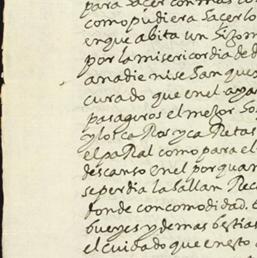 para hacer con mas co
como pudiera hacerlo
en que abita un hizon
por la misericordia de d
a nadie ni se han que x
curado que en el aya
pasageros el mejor ho
y los carros y carretas
el paral como para el
descanso en el por quan
se perdia la hallan rec
donde con comodidad.
bueyes y demas bestias
el cuidado que en esto